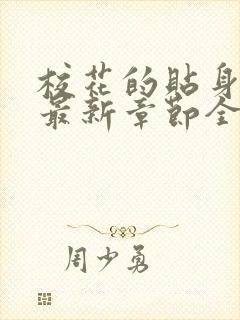 校花的贴身
最新章节全
周少勇